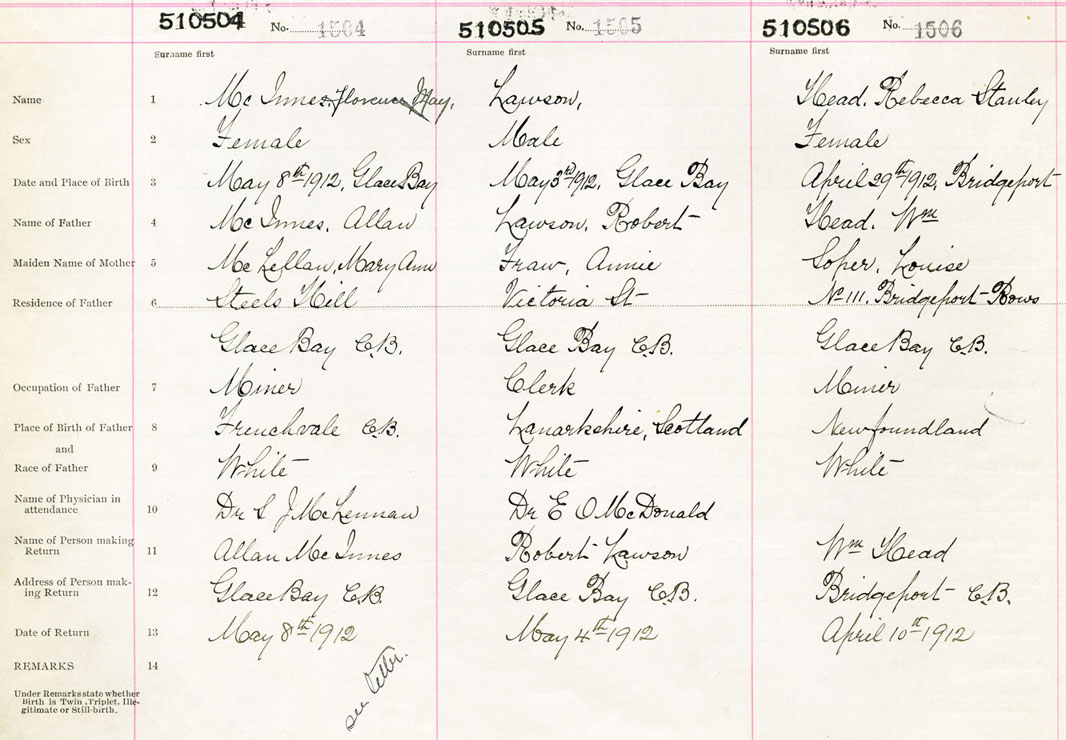 510504 No. 1504 510505 No. 1505 510506 No. 1506
Surname first Surname first Surname first
Name 1 Mc Innes, Florence May, Lawson, Head. Rebecca Stanley
Sex 2 Female Male Female
Date and Place of Birth 3 May 8th 1912, Glace Bay May 3rd 1912, Glace Bay April 29th 1912, Bridgeport
Name of Father 4 Mc Innes, Allan Lawson, Robert Head. Wm
Maiden Name of Mother 5 Mc Lellan, Mary Ann Fraw, Annie Soper, Louise
Residence of Father 6 Steels Hill Victoria St No 111. Bridgeport Rows
Glace Bay C.B. Glace Bay C.B. Glace Bay C.B.
Occupation of Father 7 Miner Clerk Miner
Place of Birth of Father 8 Frenchvale C.B. Lanarkshire, Scotland Newfoundland
and
Race of Father 9 White White White
Name of Physician in
attendance 10 Dr S J McLennan Dr E O McDonald
Name of Person making
Return 11 Allan Mc Innes Robert Lawson Wm Head
Address of Person mak-
ing Return 12 Glace Bay C.B. Glace Bay C.B. Bridgeport C.B.
Date of Return 13 May 8th 1912 May 4th 1912 April 10th 1912
REMARKS 14
see letter.
Under Remarks state whether
Birth is Twin, Triplet, Ille-
gitimate or Still-birth.